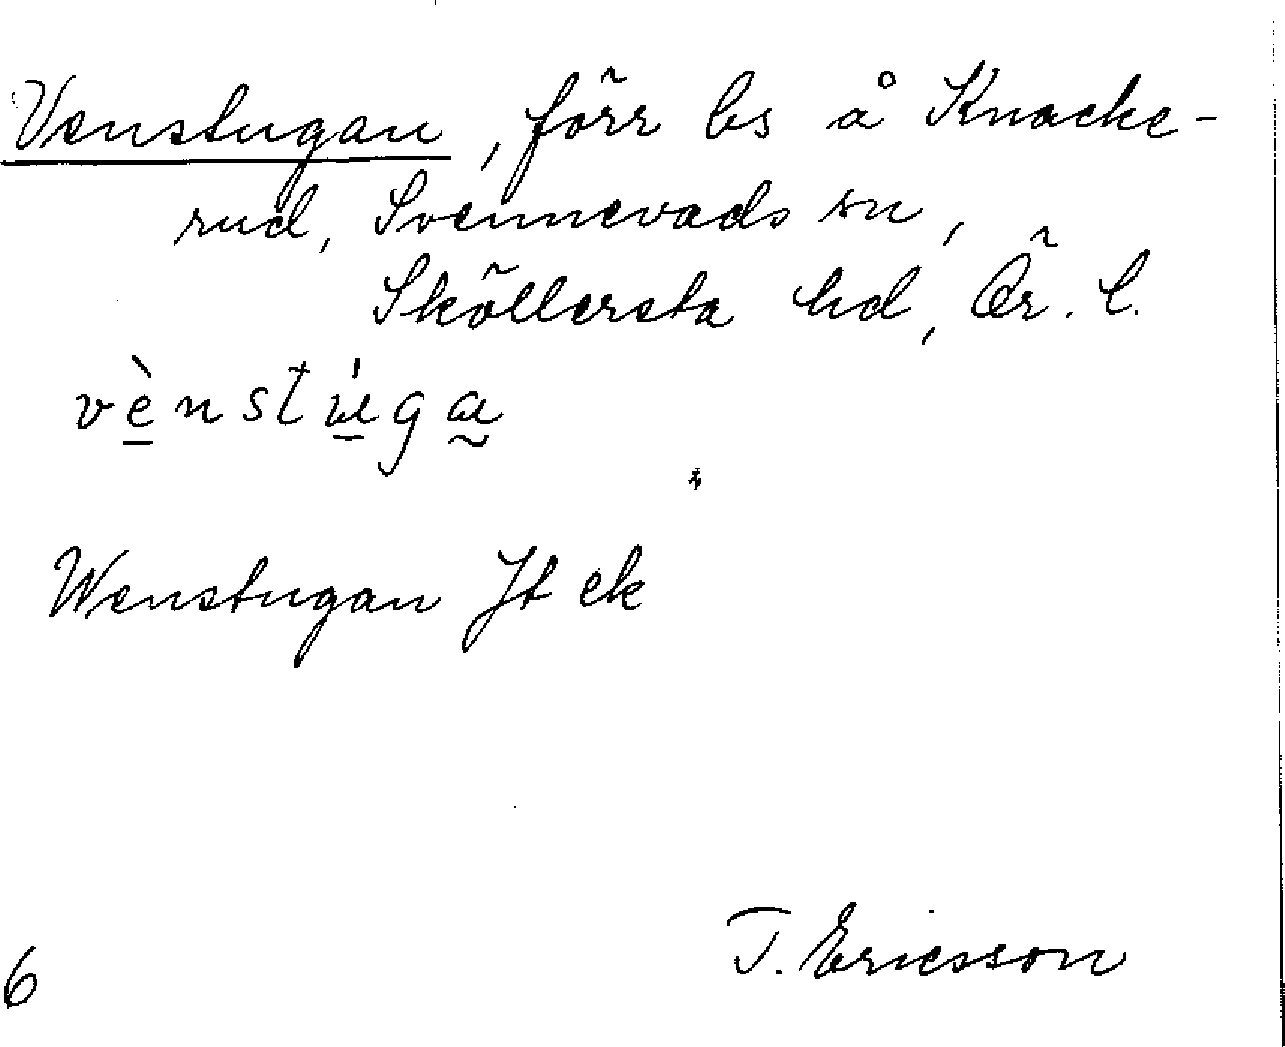 Venstugan, förr bs å Knacke-
rud, Svennevads sn,
Sköllersta hd, Ör. l.
vènstùga
Wenstugan Jt ek
T. Ericsson
6